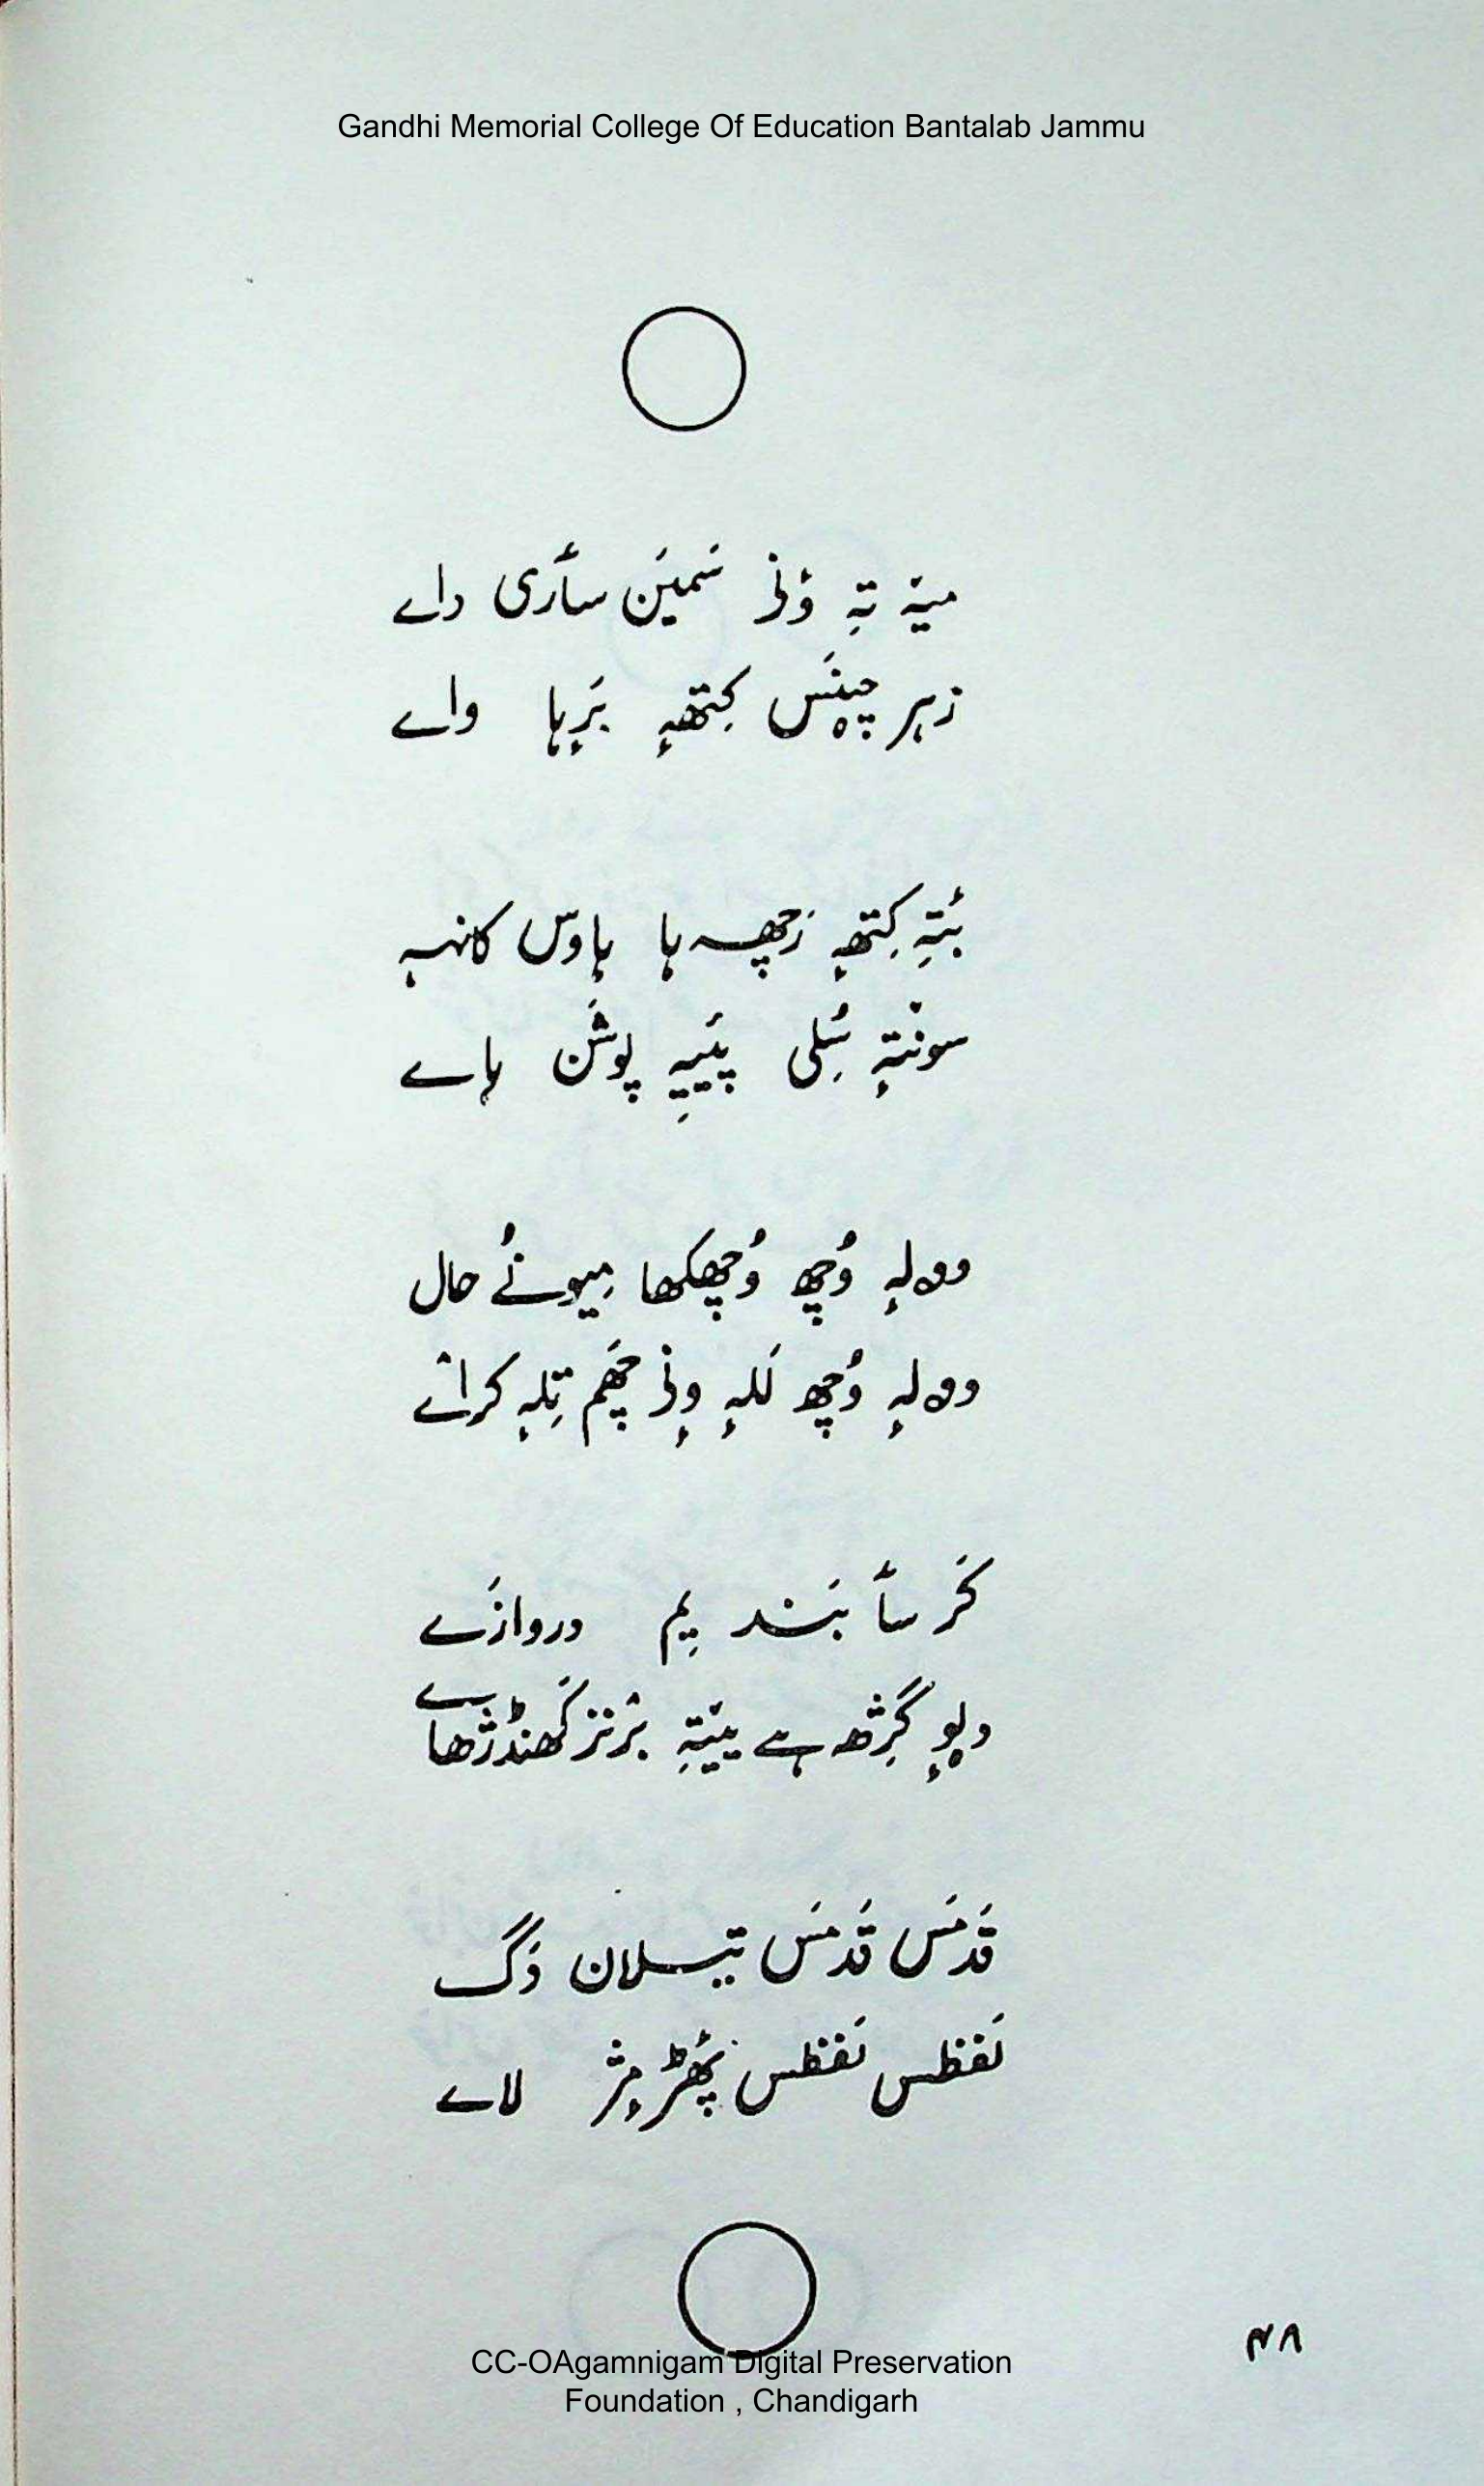 Gandhi Memorial College Of Education Bantalab Jammu
میہٚ تہِ وٕنۍ سَمیَن سأری داے
زہر چیٚنَس کِتھہٕ بَرٕہا واے
بٔتہِ کِتھہٕ زَچھہ ہا ہاوَس کانہہ
سونٛتہٕ سُلی پیٚیہِ پوشَن ہاے
وولہٕ وُچھ وُچھکھا میونُے حال
وولہٕ وُچھ للہٕ ونۍ چھَم تِلہٕ کراے
کَر سأ بَند یِم دروازَے
دِلوٕ گژھہ ہے ییٚتہِ برٛنز کھنڈژھاے
قَدمَس قَدمَس تیسلان دَگ
لَفظس لَفظس پھَڑ مٕژ لاے
۴۸
CC-OAgamnigam Digital Preservation
Foundation , Chandigarh